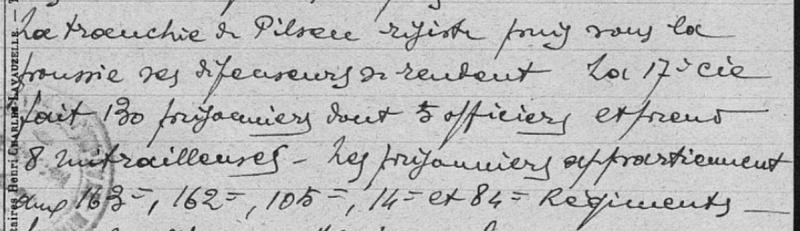 La tranchée de Pilsen résiste puis sous la
poussée ses défenseurs se rendent La 17e Cie
fait 130 prisonniers dont 5 officiers et prend
8 mitrailleuses - Les prisonniers appartiennent
aux 163=, 162=, 105=, 14= et 84= Régiments —
taires Henri CHARLES-LAVAUZELLE. —